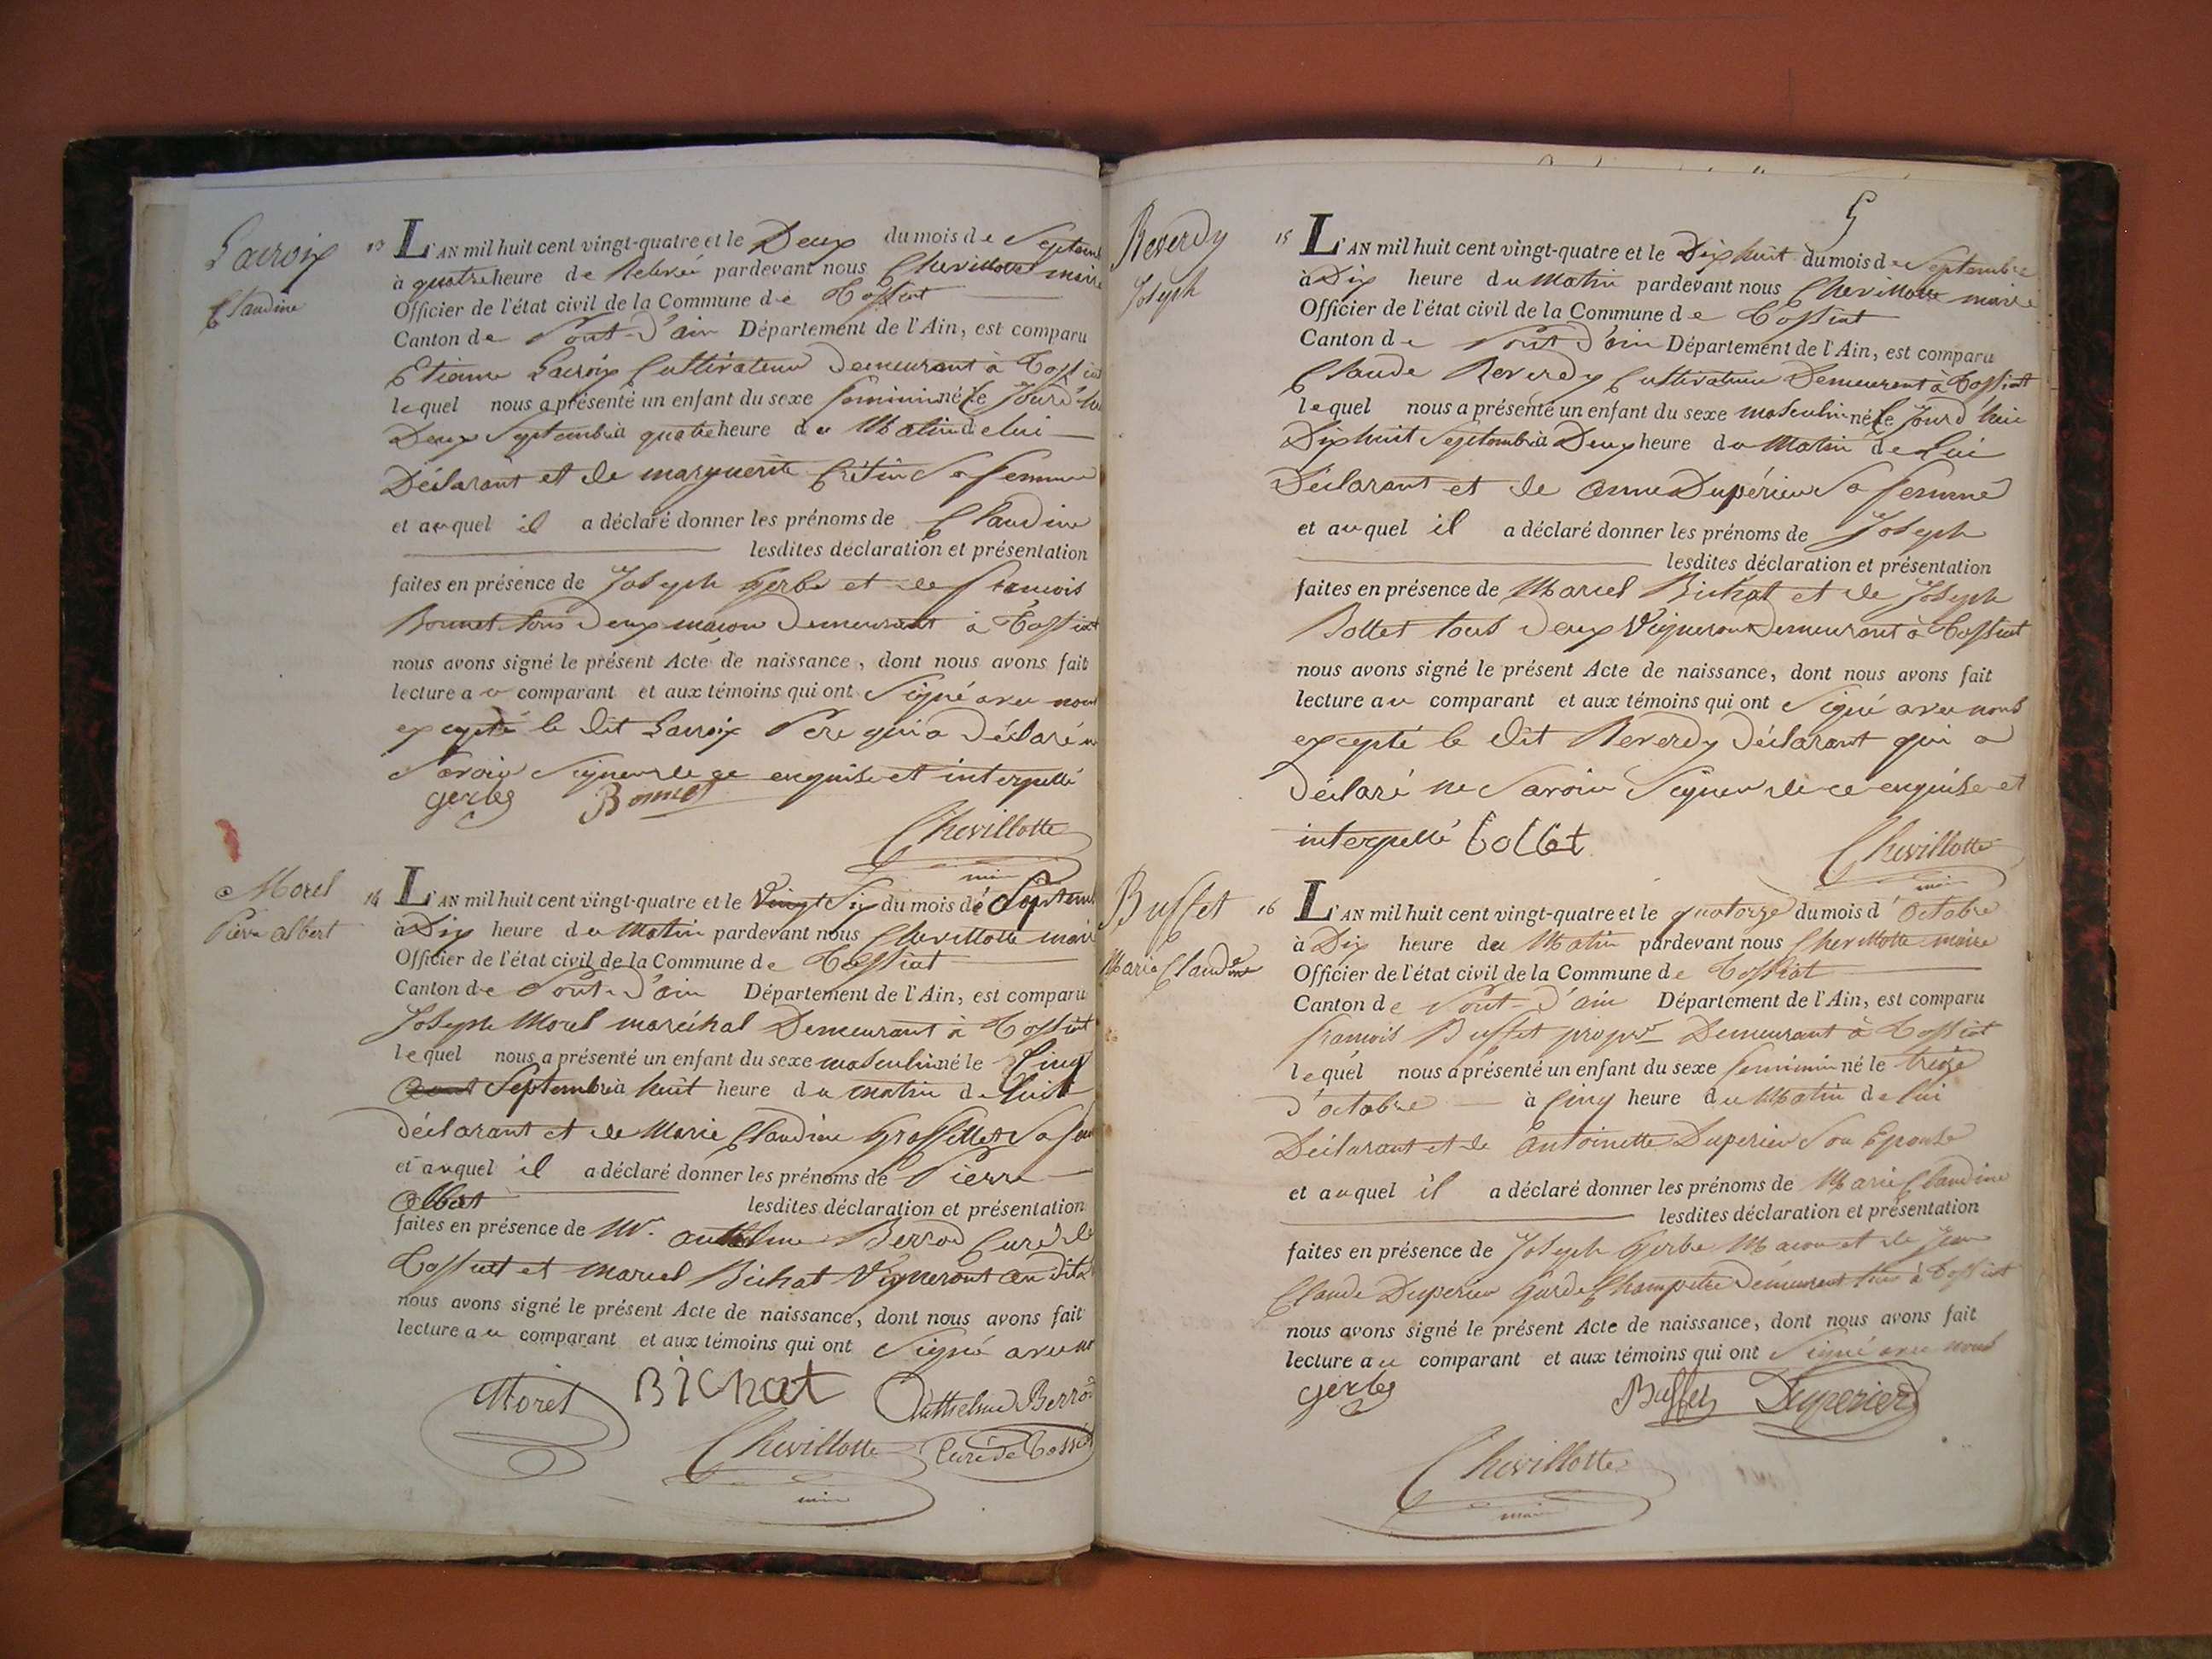 Lacroix
Claudine
13 L'AN mil huit cent vingt-quatre et le Deux du mois de Septem
à quatre heure de Relevée pardevant nous Chevillotte maire
Officier de l'état civil de la Commune de Tossiat
Canton de Pont-d'ain Département de l'Ain, est comparu
Etienne Lacroix Cultivateur Demeurant à Tossiat
lequel nous a présenté un enfant du sexe feminin né le Jourd'hui
Deux Septembre à quatre heure du Matin de lui
Déclarant et de marguerite Crétin Sa femme
et auquel il a déclaré donner les prénoms de Claudine
lesdites déclaration et présentation
faites en présence de Joseph Gerbe et de francois
Bonnet tous Deux maçon Demeurant à Tossiat
nous avons signé le présent Acte de naissance, dont nous avons fait
lecture au comparant et aux témoins qui ont Signé avec nous
excepté le dit Lacroix Pere qui a Déclaré ne
Savoir Signer de ce enquise et interpellé
gerbe Bonnet
Chevillotte
maire
Morel
Pierre albert
14 L'AN mil huit cent vingt-quatre et le Six du mois de Septem
à Dix heure du Matin pardevant nous Chevillotte maire
Officier de l'état civil de la Commune de Tossiat
Canton de Pont-d'ain Département de l'Ain, est comparu
Joseph Morel maréchal Demeurant à Tossiat
lequel nous a présenté un enfant du sexe masculin né le Cinq
Septembre à huit heure du matin de lui
déclarant et de Marie Claudine Grossillet Sa fem
et auquel il a déclaré donner les prénoms de Pierre
Albert lesdites déclaration et présentation
faites en présence de Mr. anthelme Berrod Curé de
Tossiat et marcel Bichat Vigneront au dit
nous avons signé le présent Acte de naissance, dont nous avons fait
lecture au comparant et aux témoins qui ont Signé avec no
Morel Bichat Anthelme Berrod
Chevillotte Curé de Tossiat
maire
5
Reverdy
Joseph
15 L'AN mil huit cent vingt-quatre et le Dix huit du mois de Septembre
à Dix heure du Matin pardevant nous Chevillotte maire
Officier de l'état civil de la Commune de Tossiat
Canton de Pont d'ain Département de l'Ain, est comparu
Claude Reverdy Cultivateur Demeurant à Tossiat
lequel nous a présenté un enfant du sexe masculin né le Jourd'hui
Dix huit Septembre à Deux heure du Matin de Lui
Déclarant et de anne Dupérieu Sa femme
et auquel il a déclaré donner les prénoms de Joseph
lesdites déclaration et présentation
faites en présence de Marcel Bichat et de Joseph
Bollet tous Deux Vigneront Demeurant à Tossiat
nous avons signé le présent Acte de naissance, dont nous avons fait
lecture au comparant et aux témoins qui ont Signé avec nous
excepté le dit Reverdy Déclarant qui a
Déclaré ne Savoir Signer de ce enquise et
interpellé bollet
Chevillotte
maire
Buffet
Marie Claudine
16 L'AN mil huit cent vingt-quatre et le quatorze du mois d'octobre
à Dix heure du Matin pardevant nous Chevillotte maire
Officier de l'état civil de la Commune de Tossiat
Canton de Pont-d'ain Département de l'Ain, est comparu
francois Buffet propre Demeurant à Tossiat
lequel nous a présenté un enfant du sexe feminin né le treize
d'octobre à Cinq heure du Matin de lui
Déclarant et de Antoinette Duperieu Son Epouse
et auquel il a déclaré donner les prénoms de Marie Claudine
lesdites déclaration et présentation
faites en présence de Joseph Gerbe Macon et de Jean
Claude Duperieu Garde Champetre Demeurant tous à Tossiat
nous avons signé le présent Acte de naissance, dont nous avons fait
lecture au comparant et aux témoins qui ont Signé avec nous
gerbe Buffet Duperier
Chevillotte
maire